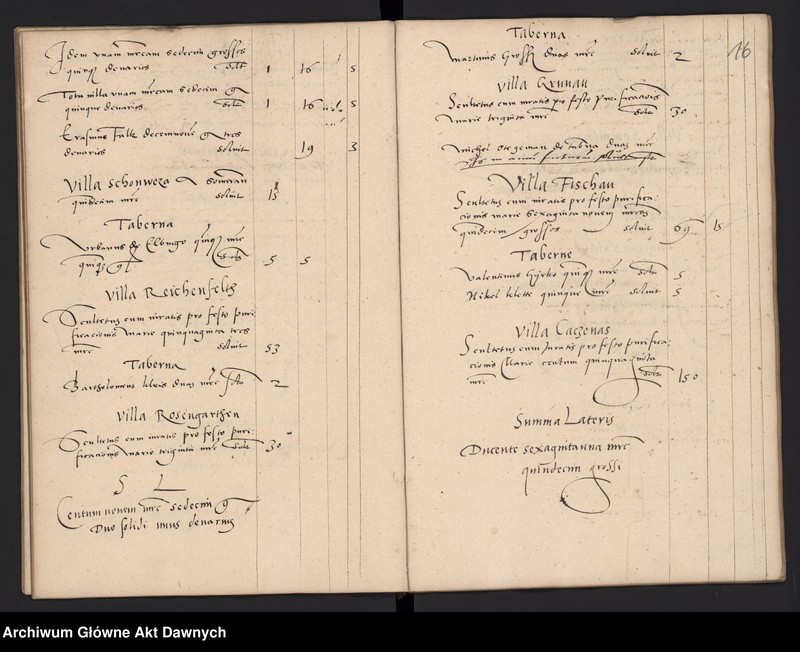 Idem unam mrcam sedecim grosses
quinq denarios solt 1 16 5
unam mrcam sedecim g
quinque denarios solt 1 16 5
Erasmus Falk decemnove g tres
denarios soluit 19 3
Villa Schonweza
quindecim mrc soluit 15
Taberna
Urbanus de Elbingo quinq mrc
quinq g solt 5 5
Villa Reichenfeltz
Scultetus cum iuratis pro festo puri
ficacionis Marie quinquaginta tres
mrc soluit 53
Taberna
Bartholomeus duas mrc 2
Villa Rosengarthen
Scultetus cum iuratis pro festo puri
ficacionis Marie triginta mrc solt 30
S L
Centum novem mrc sedecim g
Duo solidi unus denarius
Taberna
Martinus Grosz duas mrc soluit 2
16
Villa Grunau
Scultetus cum iuratis pro festo purificacionis
Marie triginta mrc solt 30
Michel de taberna duas mrc
Villa Fischau
Scultetus cum iuratis pro festo purifica
cionis marie sexaginta novem mrcas
quindecim grosses soluit 69 15
Taberne
Valentinus quinq mrc solt 5
Nikel quinque mrc soluit 5
Villa Caczenas
Scultetus cum Juratis pro festo purifica
cionis Marie centum quinquaginta
mrc solt 150
Summa Lateris
Ducente sexaginta una mrc
quindecim grossi
Archiwum Główne Akt Dawnych